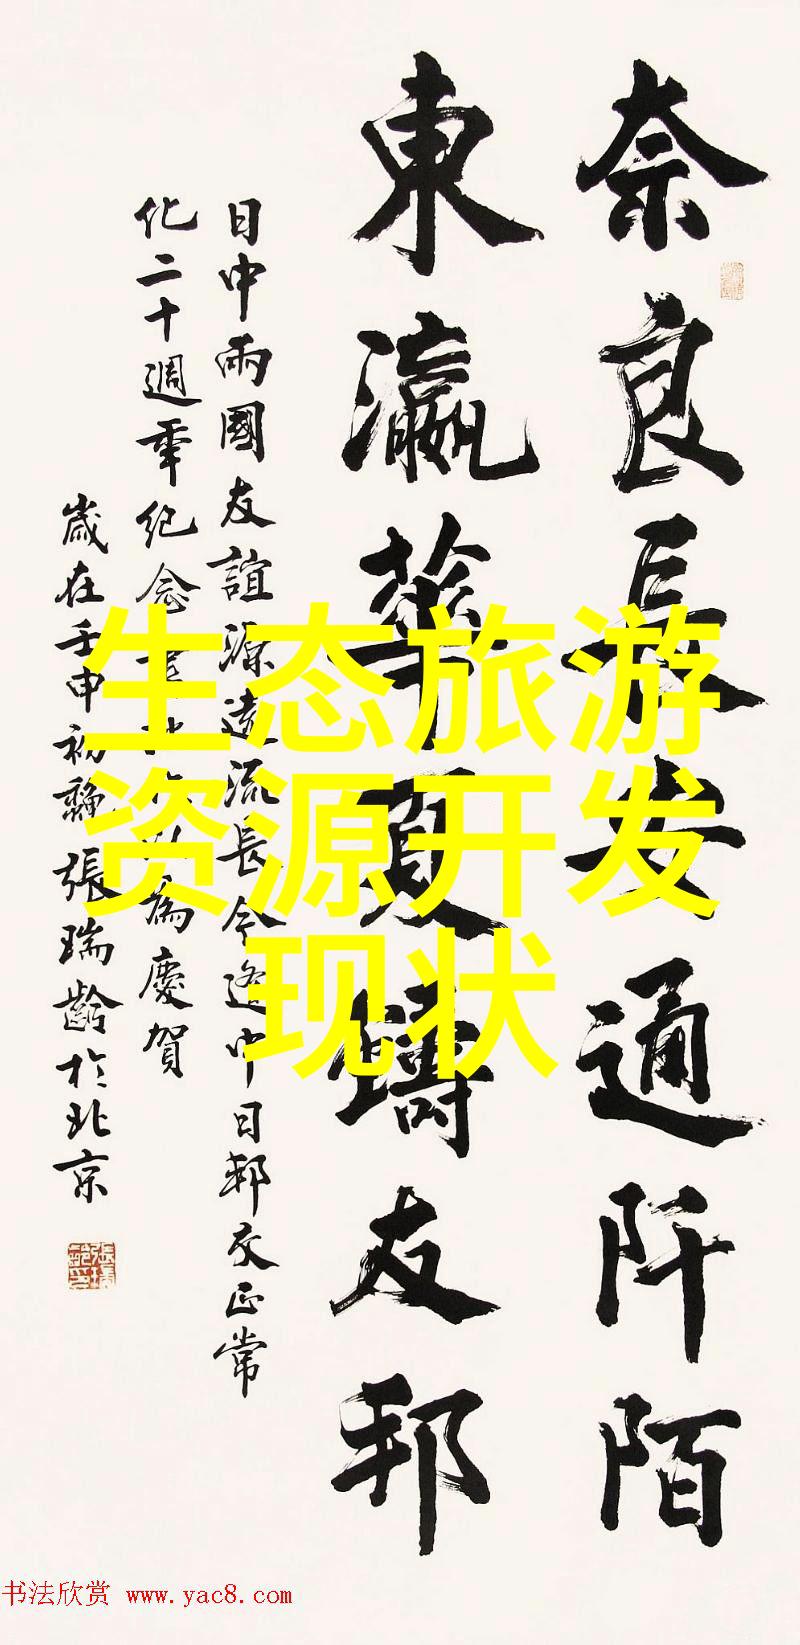 奈良長安通阡陌
東瀛華夏鑄友邦
日中兩國友誼源遠流長今逢中日邦交正常
化二十週年紀念為慶賀
歲在壬申初春張瑞齡於北京
生态旅游
资源开发
现状
书法欣赏 www.yac8.com